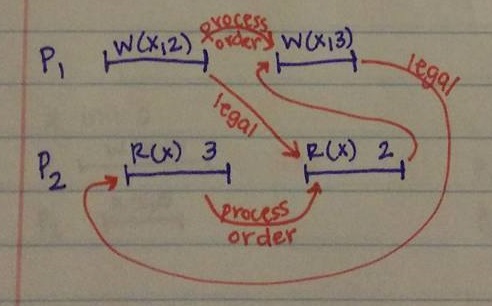 process
order
P1 W(x,2) W(x,3)
legal
legal
P2 R(x) 3 R(x) 2
process
order